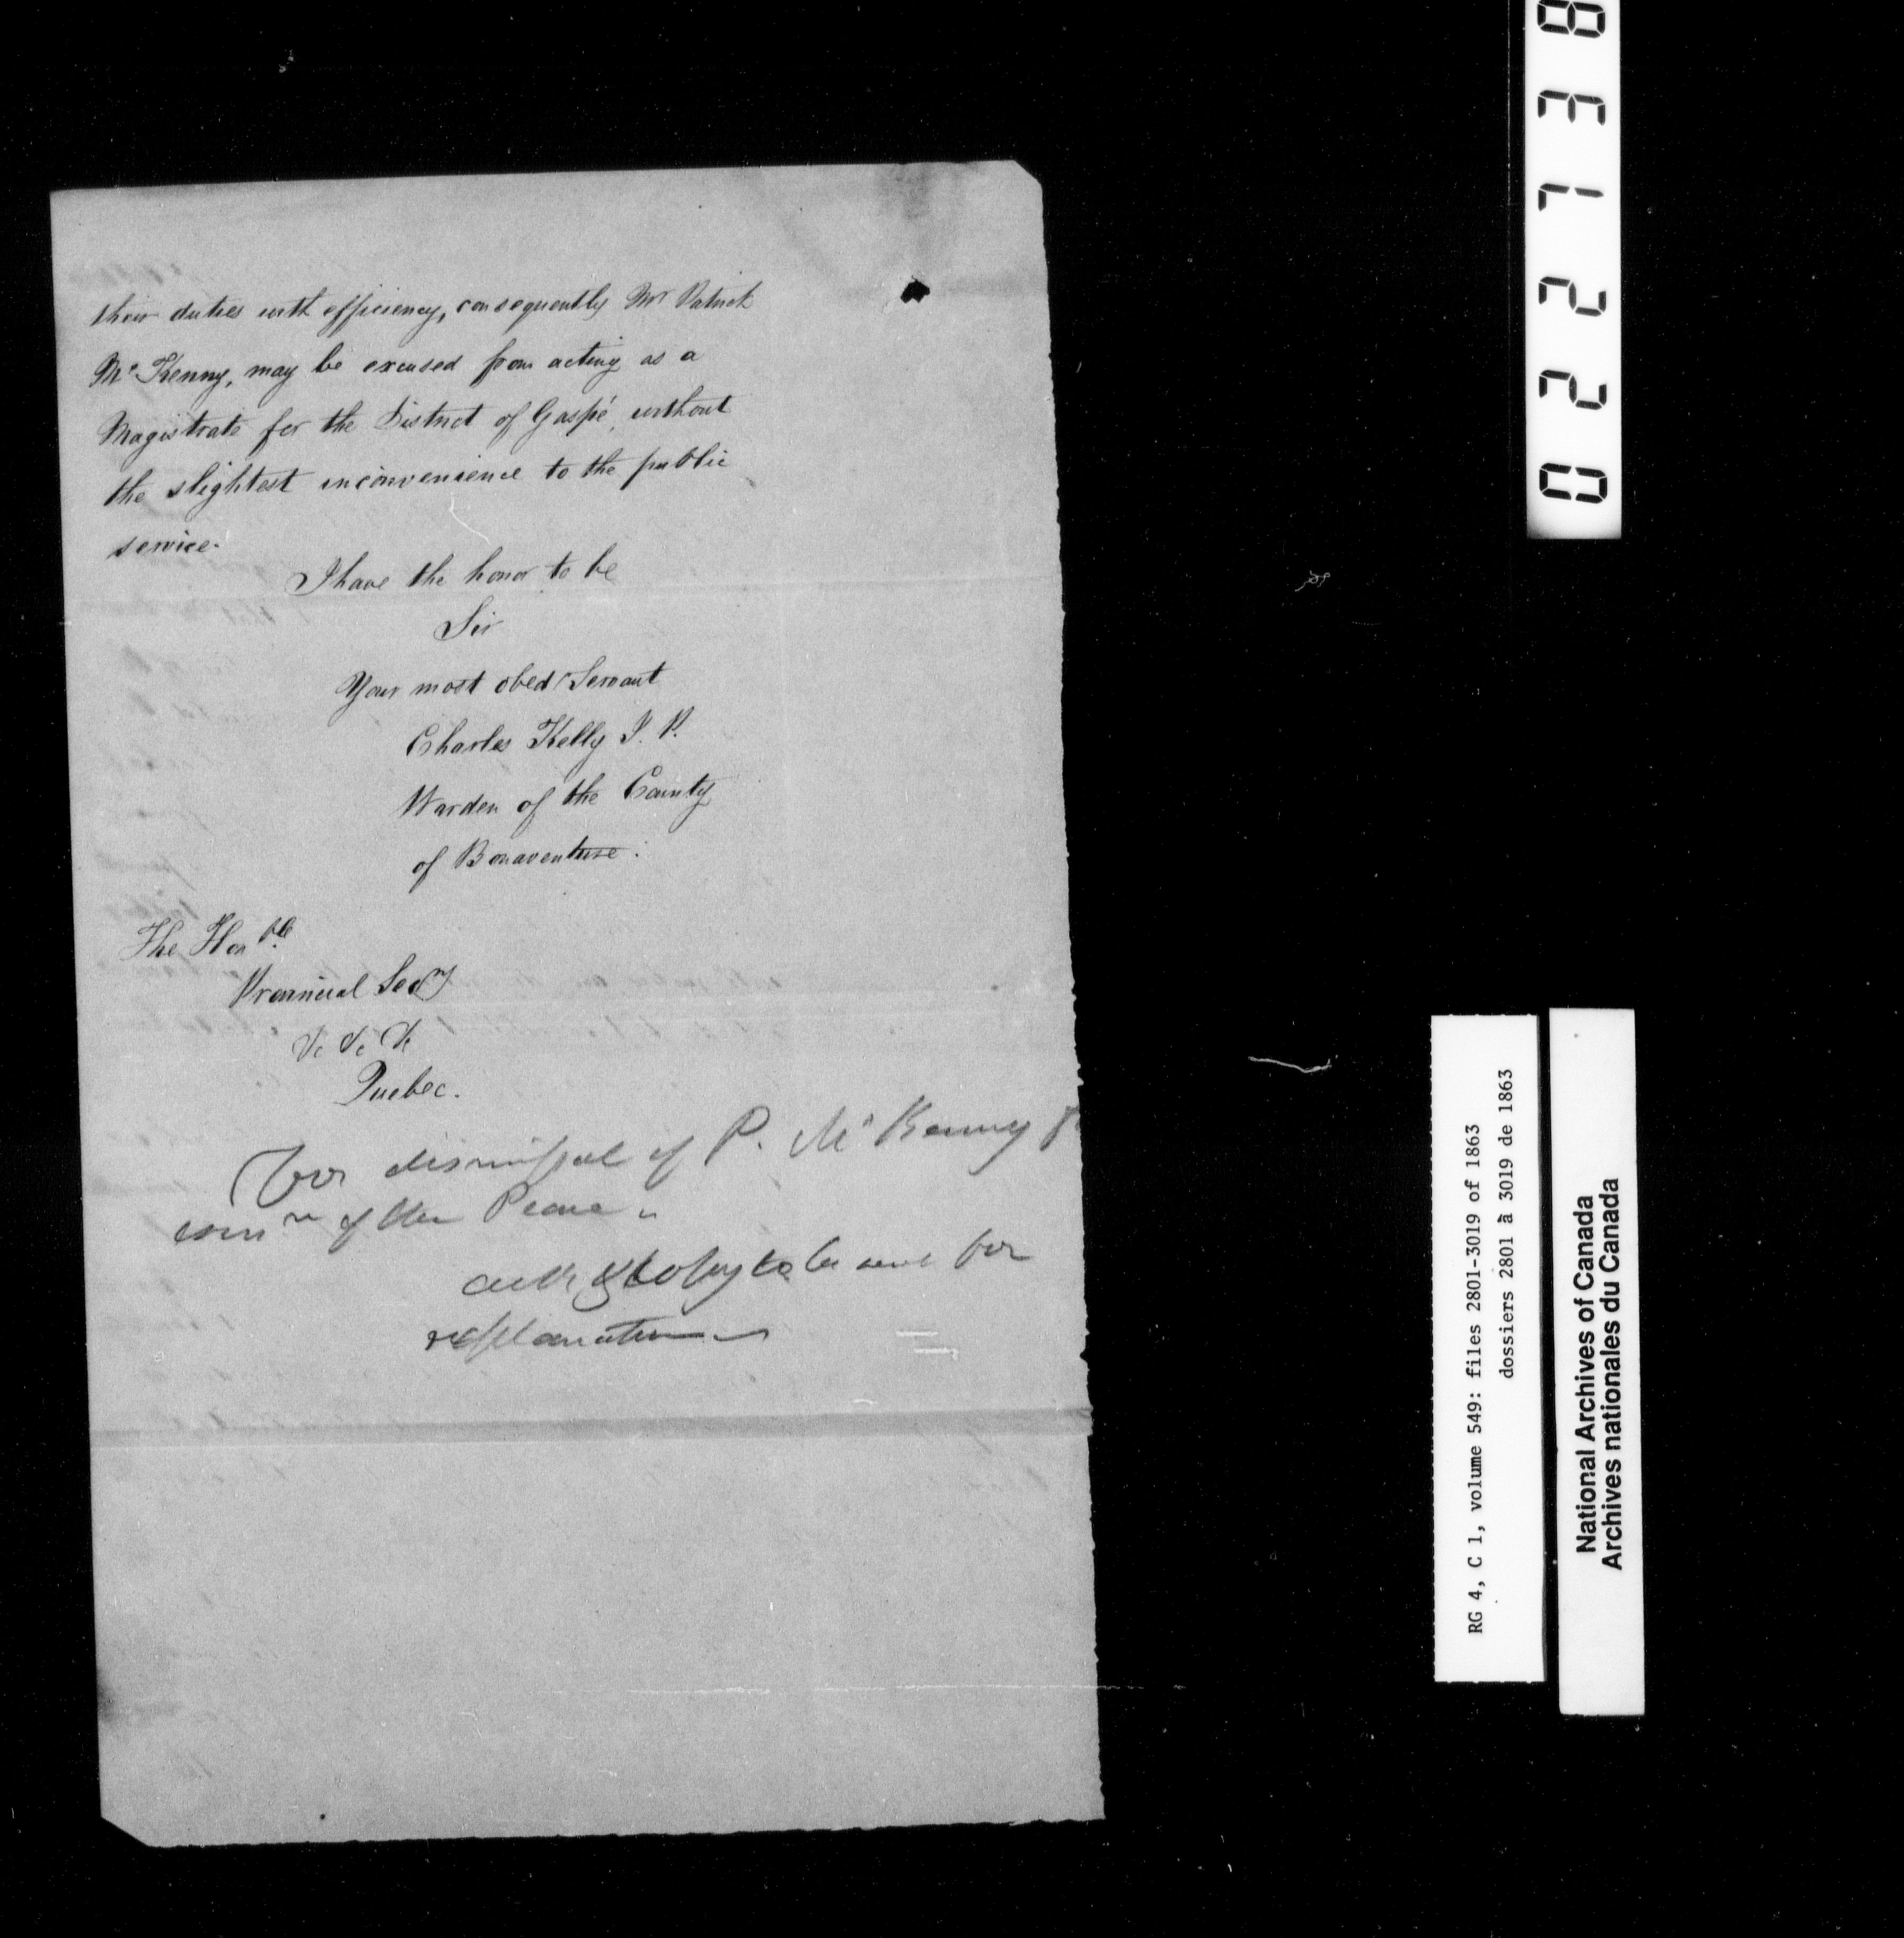 their duties with efficiency, consequently Mr Patrick
Mc Kenny, may be excused from acting as a
Magistrate for the District of Gaspé, without
the slightest inconvenience to the public
service.
I have the honor to be
Sir
Your most obed Servant
Charles Kelly J. P.
Warden of the County
of Bonaventure.
The Honble
Provincial Secry
&c &c &c
Quebec.
For dismissal of P. McKenny
comn of the Peace
to be sent for
explanation
022738
RG 4, C 1, volume 549: files 2801-3019 of 1863
dossiers 2801 à 3019 de 1863
National Archives of Canada
Archives nationales du Canada